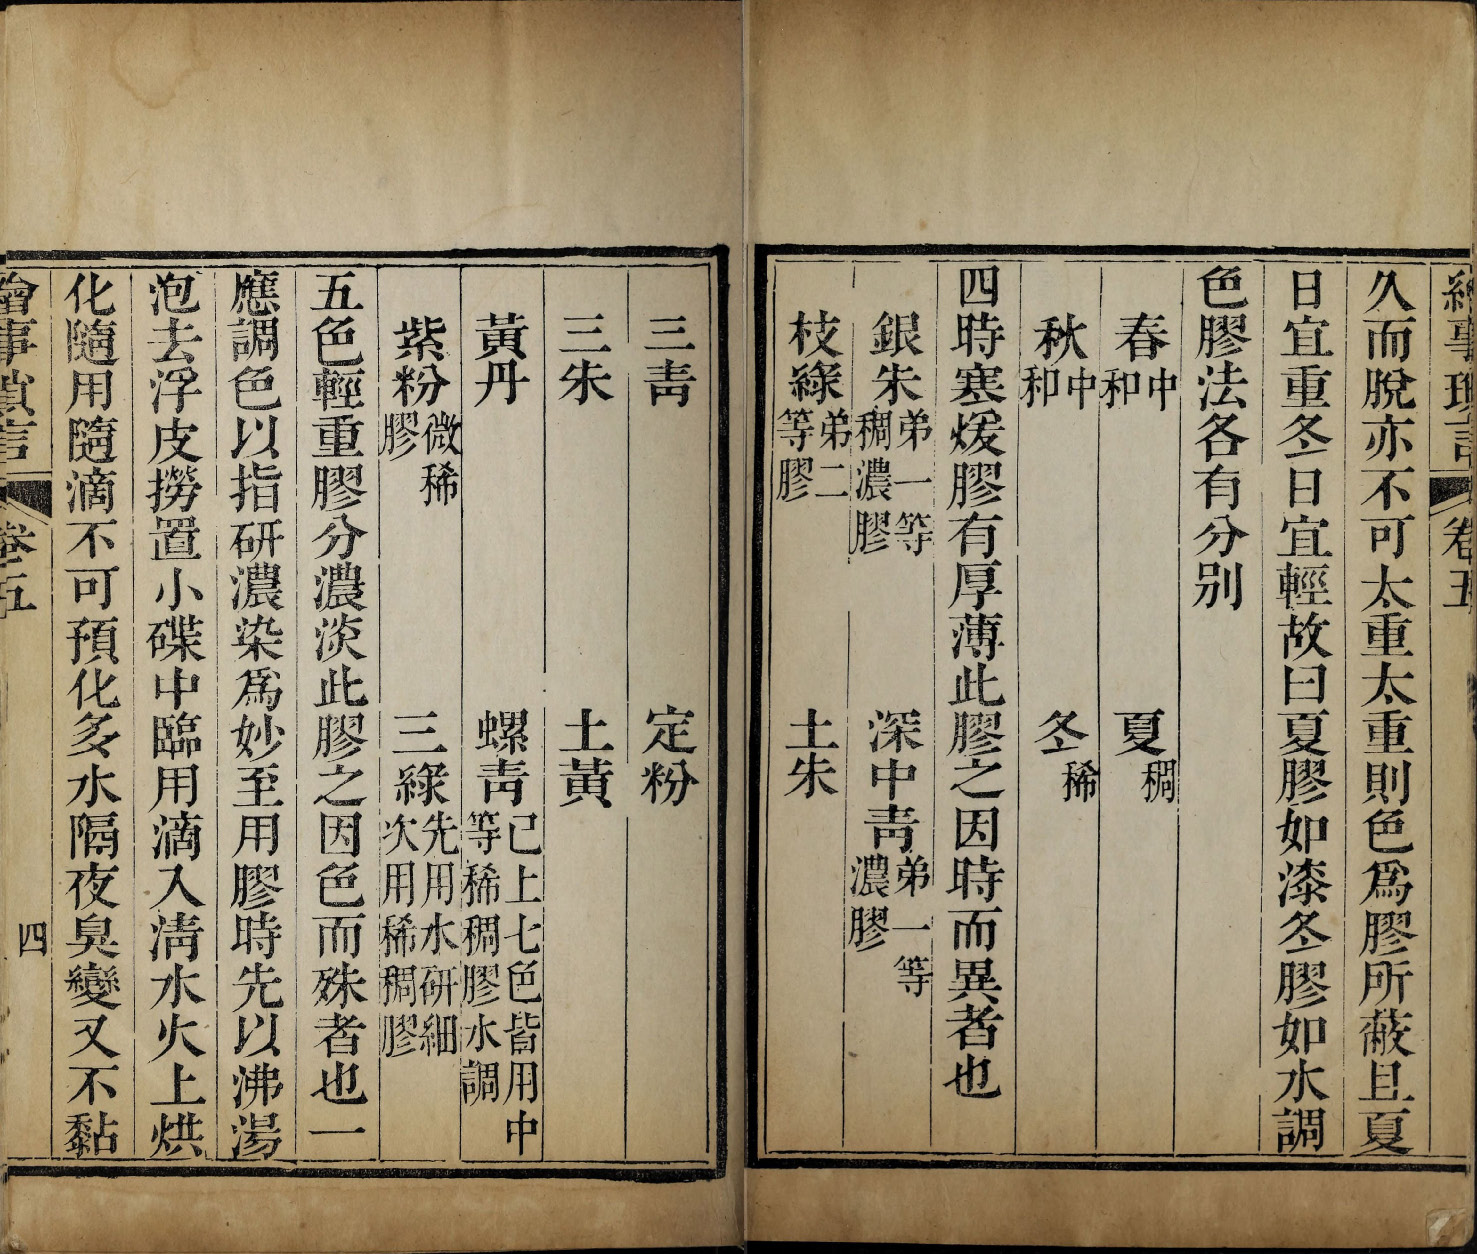 繪事瑣言 卷五
久而脫亦不可太重太重則色爲膠所蔽且夏
日宜重冬日宜輕故曰夏膠如漆冬膠如水調
色膠法各有分别
春中和 夏稠
秋中和 冬稀
四時寒煖膠有厚薄此膠之因時而異者也
銀朱弟一等稠濃膠 深中靑弟一等濃膠
枝綠弟二等膠 土朱
三靑 定粉
三朱 土黃
黃丹 螺靑已上七色皆用中等稀稠膠水調
紫粉微稀膠 三綠先用水研細次用稀稠膠
五色輕重膠分濃淡此膠之因色而殊者也一
應調色以指研濃染爲妙至用膠時先以沸湯
泡去浮皮撈置小碟中臨用滴入淸水火上烘
化隨用隨滴不可預化多水隔夜臭變又不黏
繪事瑣言 卷五 四